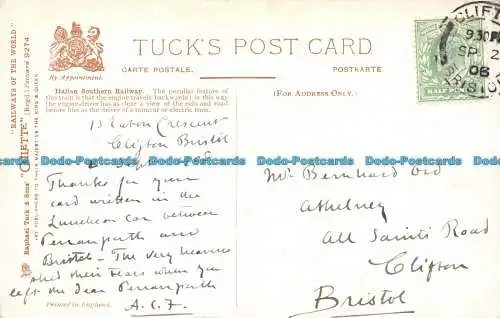 TUCK'S POST CARD
By Appointment.
CARTE POSTALE. POSTKARTE
(FOR ADDRESS ONLY.)
"RAILWAYS OF THE WORLD."
"OILETTE" [Regd.] Postcard 9274.
Raphael Tuck & Sons'
ART PUBLISHERS TO THEIR MAJESTIES THE KING & QUEEN.
Italian Southern Railway. The peculiar feature of
this train is that the engine travels backwards; in this way
the engine-driver has as clear a view of the rails and road
before him as the driver of a tramcar or electric tram.
CLIFTON
9.30 PM
SP 2
08
BRISTOL
HALF PENNY
13 Eaton Crescent
Clifton Bristol
Sept
Thanks for your
card written in the
Luncheon Car between
Perranporth and
Bristol – The very heavens
shed their tears when you
left the dear Perranporth
A.C.F.
Printed in England.
Mr Bernhard Ord
Athelney
All Saints Road
Clifton
Bristol
Dodo-Postcards Dodo-Postcards Dodo-Postcards Dodo-Postcards
Dodo-Postcards Dodo-Postcards Dodo-Postcards Dodo-Postcards
Dodo-Postcards Dodo-Postcards Dodo-Postcards Dodo-Postcards